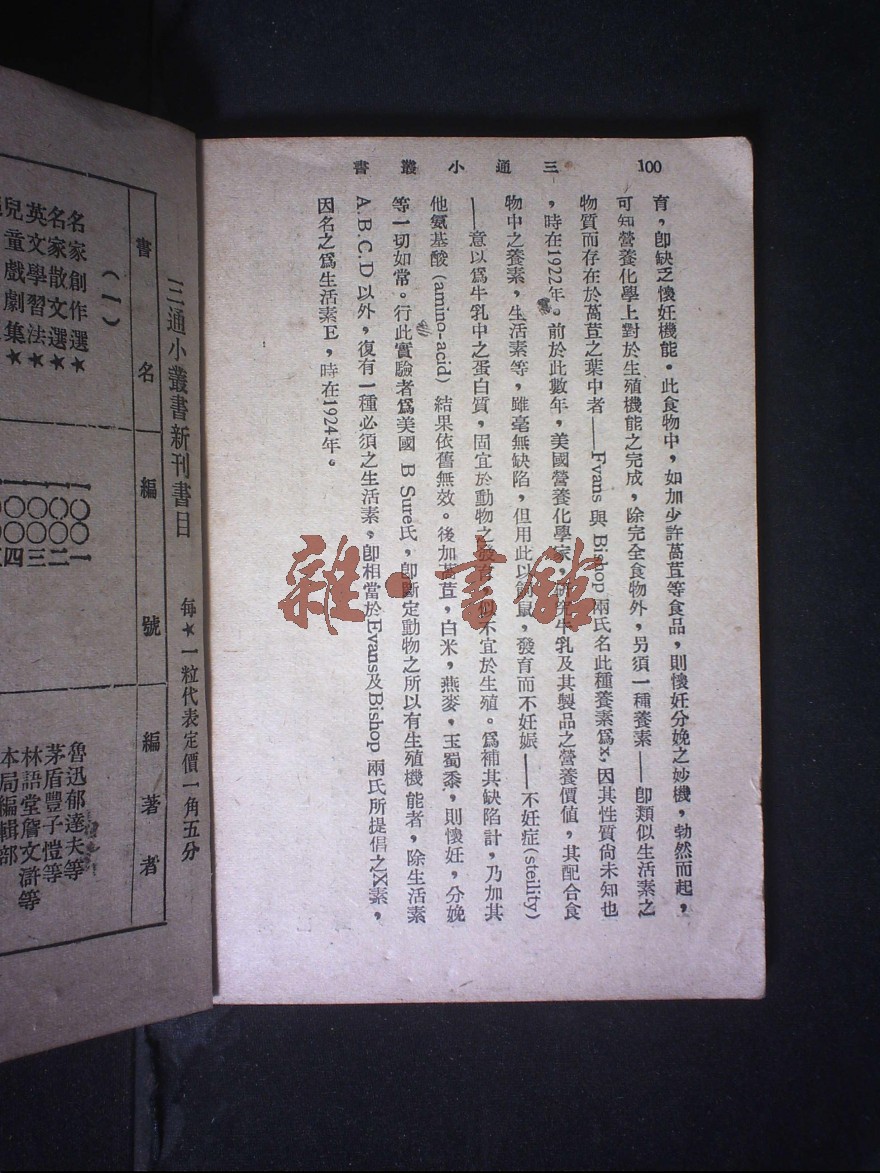 100
三通小叢書
育，卽缺乏懷妊機能。此食物中，如加少許萵苣等食品，則懷妊分娩之妙機，勃然而起，
可知營養化學上對於生殖機能之完成，除完全食物外，另須一種養素——卽類似生活素之
物質而存在於萵苣之葉中者——Evans 與 Bishop 兩氏名此種養素爲x，因其性質尙未知也
，時在1922年。前於此數年，美國營養化學家，研究牛乳及其製品之營養價値，其配合食
物中之養素，生活素等，雖毫無缺陷，但用此以飼鼠，發育而不妊娠——不妊症(steility)
——意以爲牛乳中之蛋白質，固宜於動物之發育，似不宜於生殖。爲補其缺陷計，乃加其
他氨基酸 (amino-acid) 結果依舊無效。後加萵苣，白米，燕麥，玉蜀黍，則懷妊，分娩
等一切如常。行此實驗者爲美國 B Sure氏，卽斷定動物之所以有生殖機能者，除生活素
A.B.C.D 以外，復有一種必須之生活素，卽相當於Evans及Bishop 兩氏所提倡之X素，
因名之爲生活素E，時在1924年。
雜·書館
三通小叢書新刊書目　每★一粒代表定價一角五分
書名　編號　編著者
（一）
名家創作選★　一〇〇一　魯迅郁達夫等
名家散文選★　一〇〇二　茅盾豐子愷等
英文學習法★　一〇〇三　林語堂詹文滸等
兒童戲劇集★　一〇〇四　本局編輯部